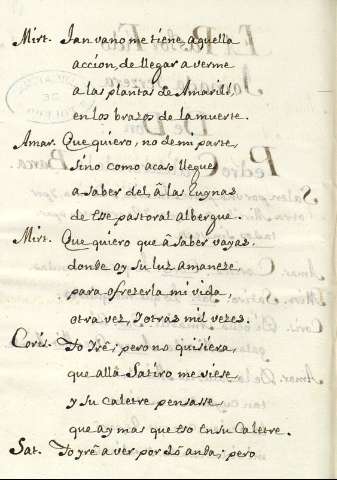 Mirt. Tan vano me tiene aquella
accion, de llegar a verme
a las plantas de Amarili,
en los brazos de la muerte.
Amar. Que quiero, no de mi parte,
sino como acaso llegues
a saber del, â las
de ese pastoral albergue.
Mirt. Que quiero que â saber vayas,
donde oy su luz amaneze,
para ofrezerla mi vida,
otra vez, y otras mil vezes.
Coris. Yo yrê; pero no quisiera,
que allâ Satiro me viese,
y su caletre pensasse,
que ay mas que eso en su caletre.
Sat. Yo yrê a ver por dô anda; pero